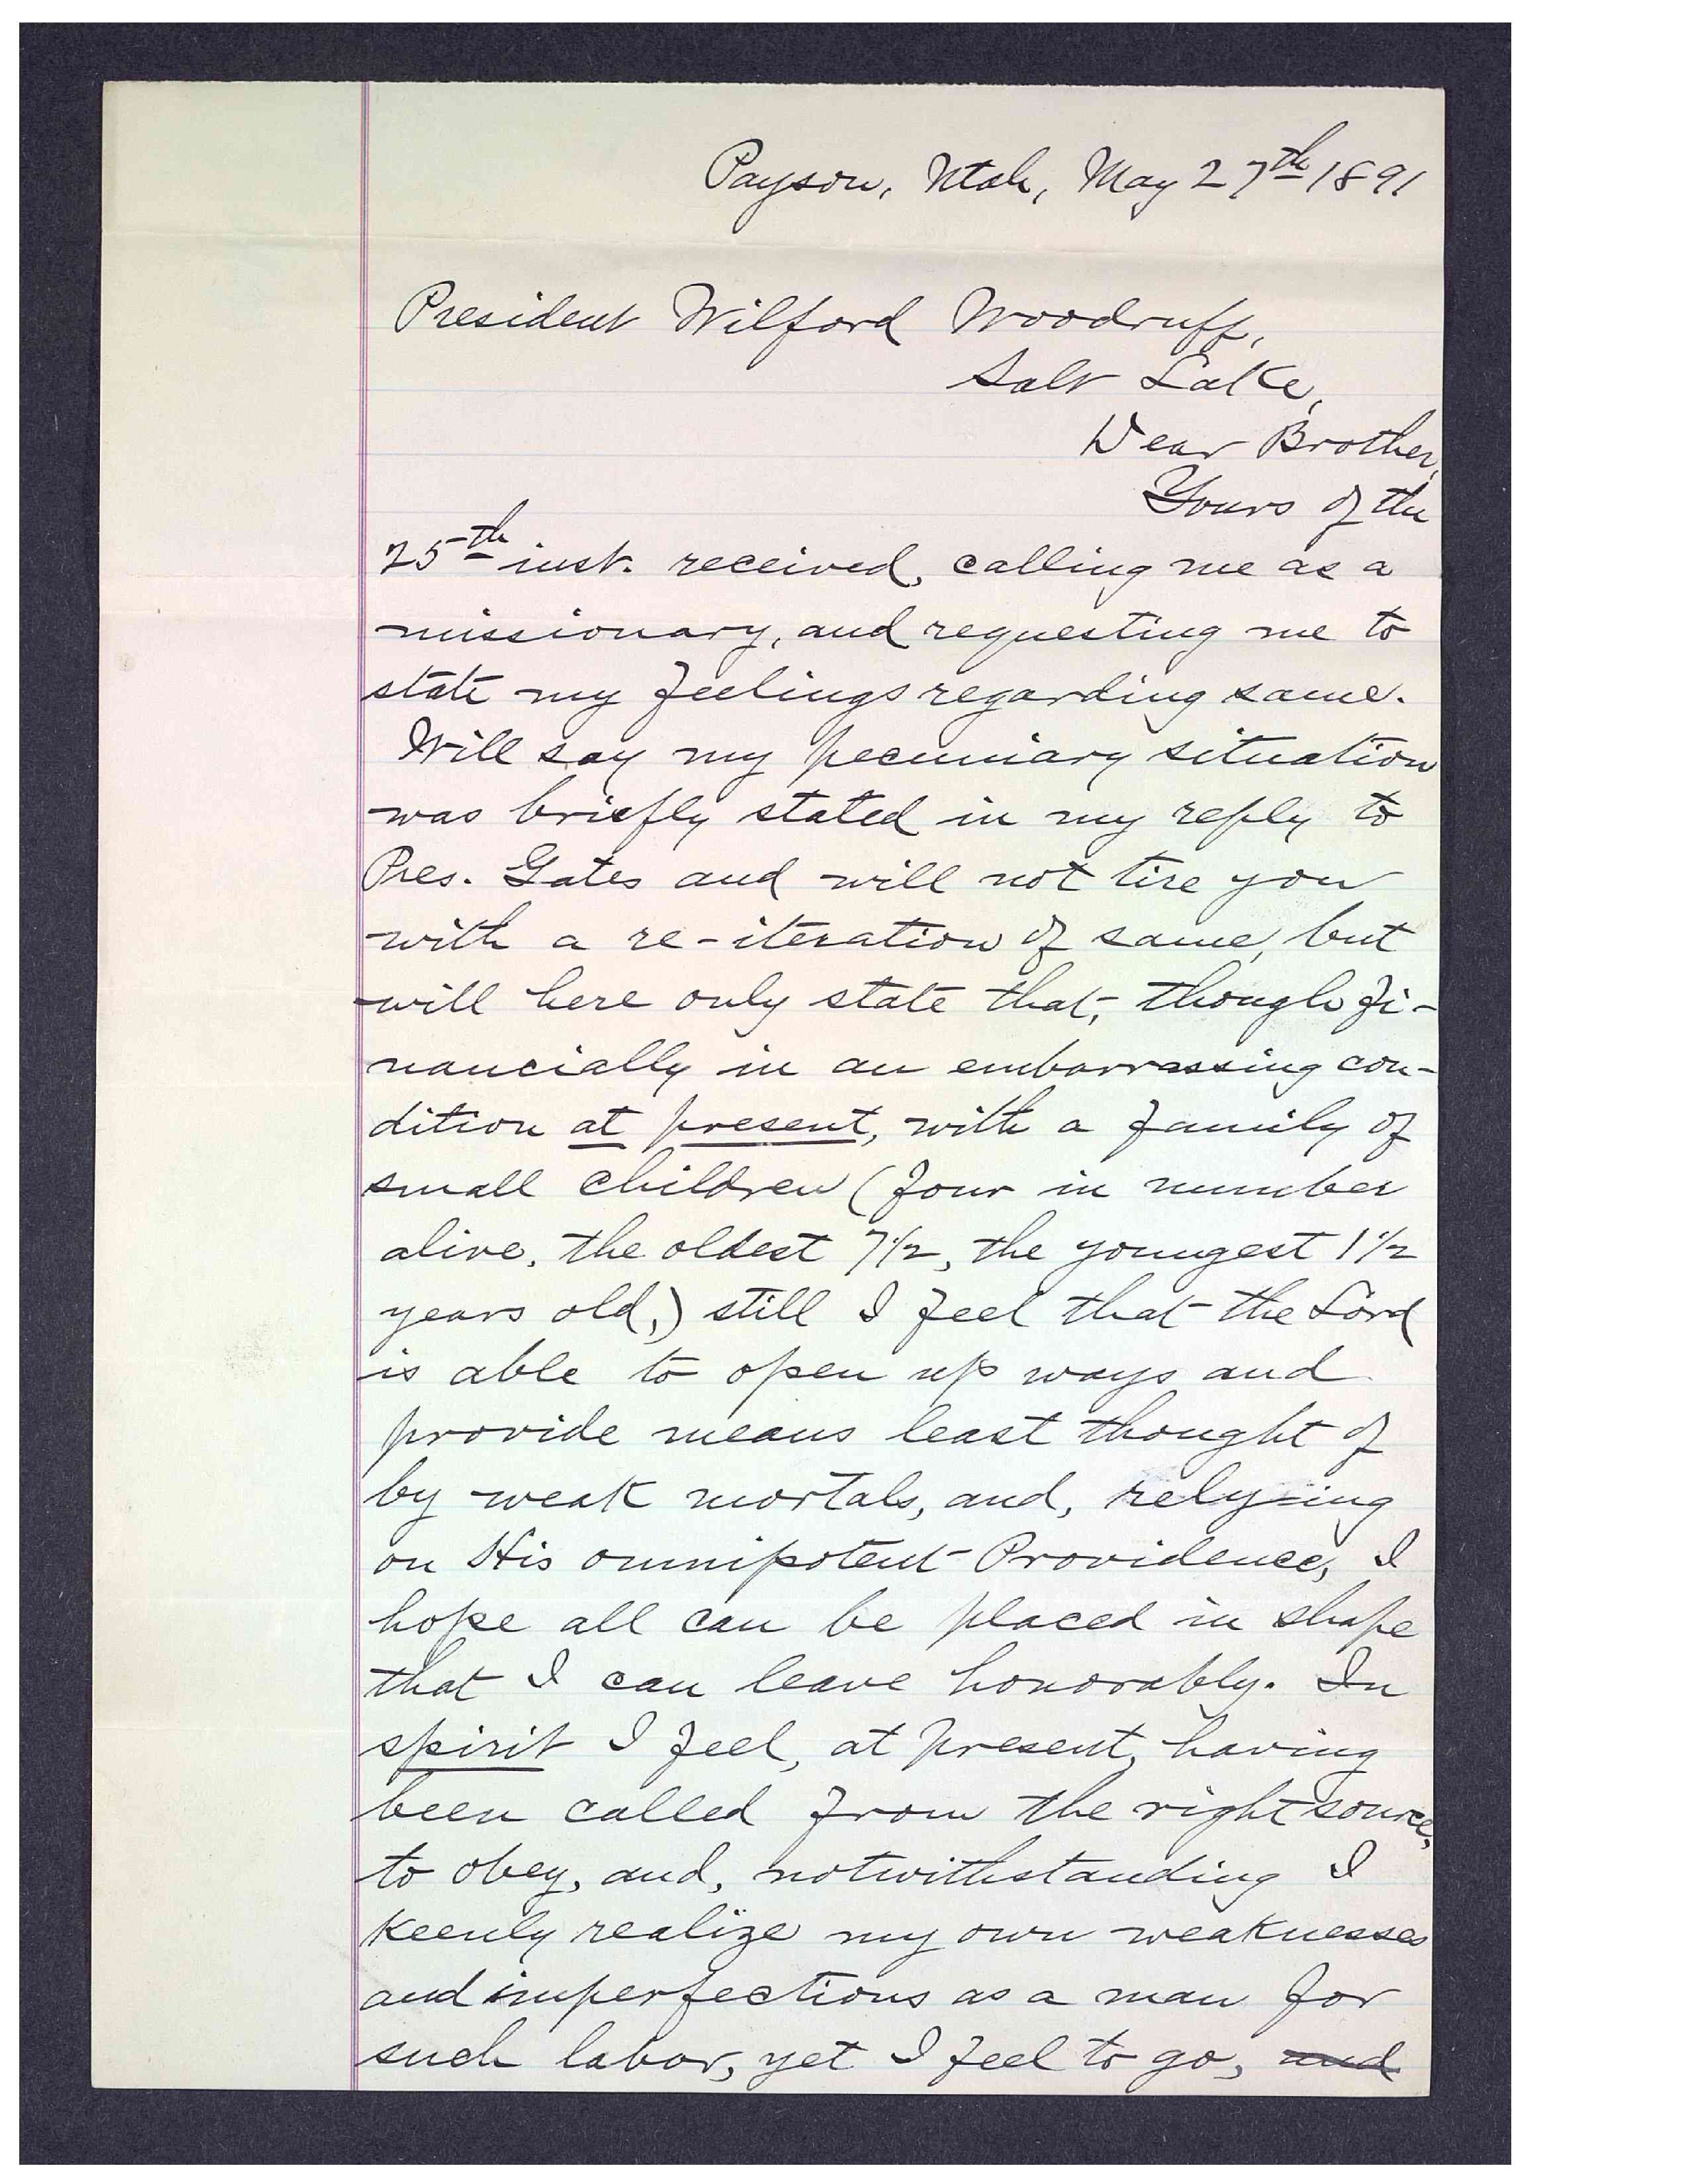 Payson, Utah, May 27th 1891
President Wilford Woodruff,
Salt Lake,
Dear Brother,
Yours of the
25th inst. received, calling me as a
missionary, and requesting me to
state my feelings regarding same.
Will say my pecuniary situation
was briefly stated in my reply to
Pres. Gates and will not tire you
with a re-iteration of same, but
will here only state that, though fi-
nancially in an embarrassing con-
dition at present, with a family of
small children (four in number
alive, the oldest 7 1/2, the youngest 1 1/2
years old,) still I feel that the Lord
is able to open up ways and
provide means least thought of
by weak mortals, and, relying
on His omnipotent Providence, I
hope all can be placed in shape
that I can leave honorably. In
spirit I feel, at present, having
been called from the right source,
to obey, and, notwithstanding I
keenly realize my own weaknesses
and imperfections as a man for
such labor, yet I feel to go, and